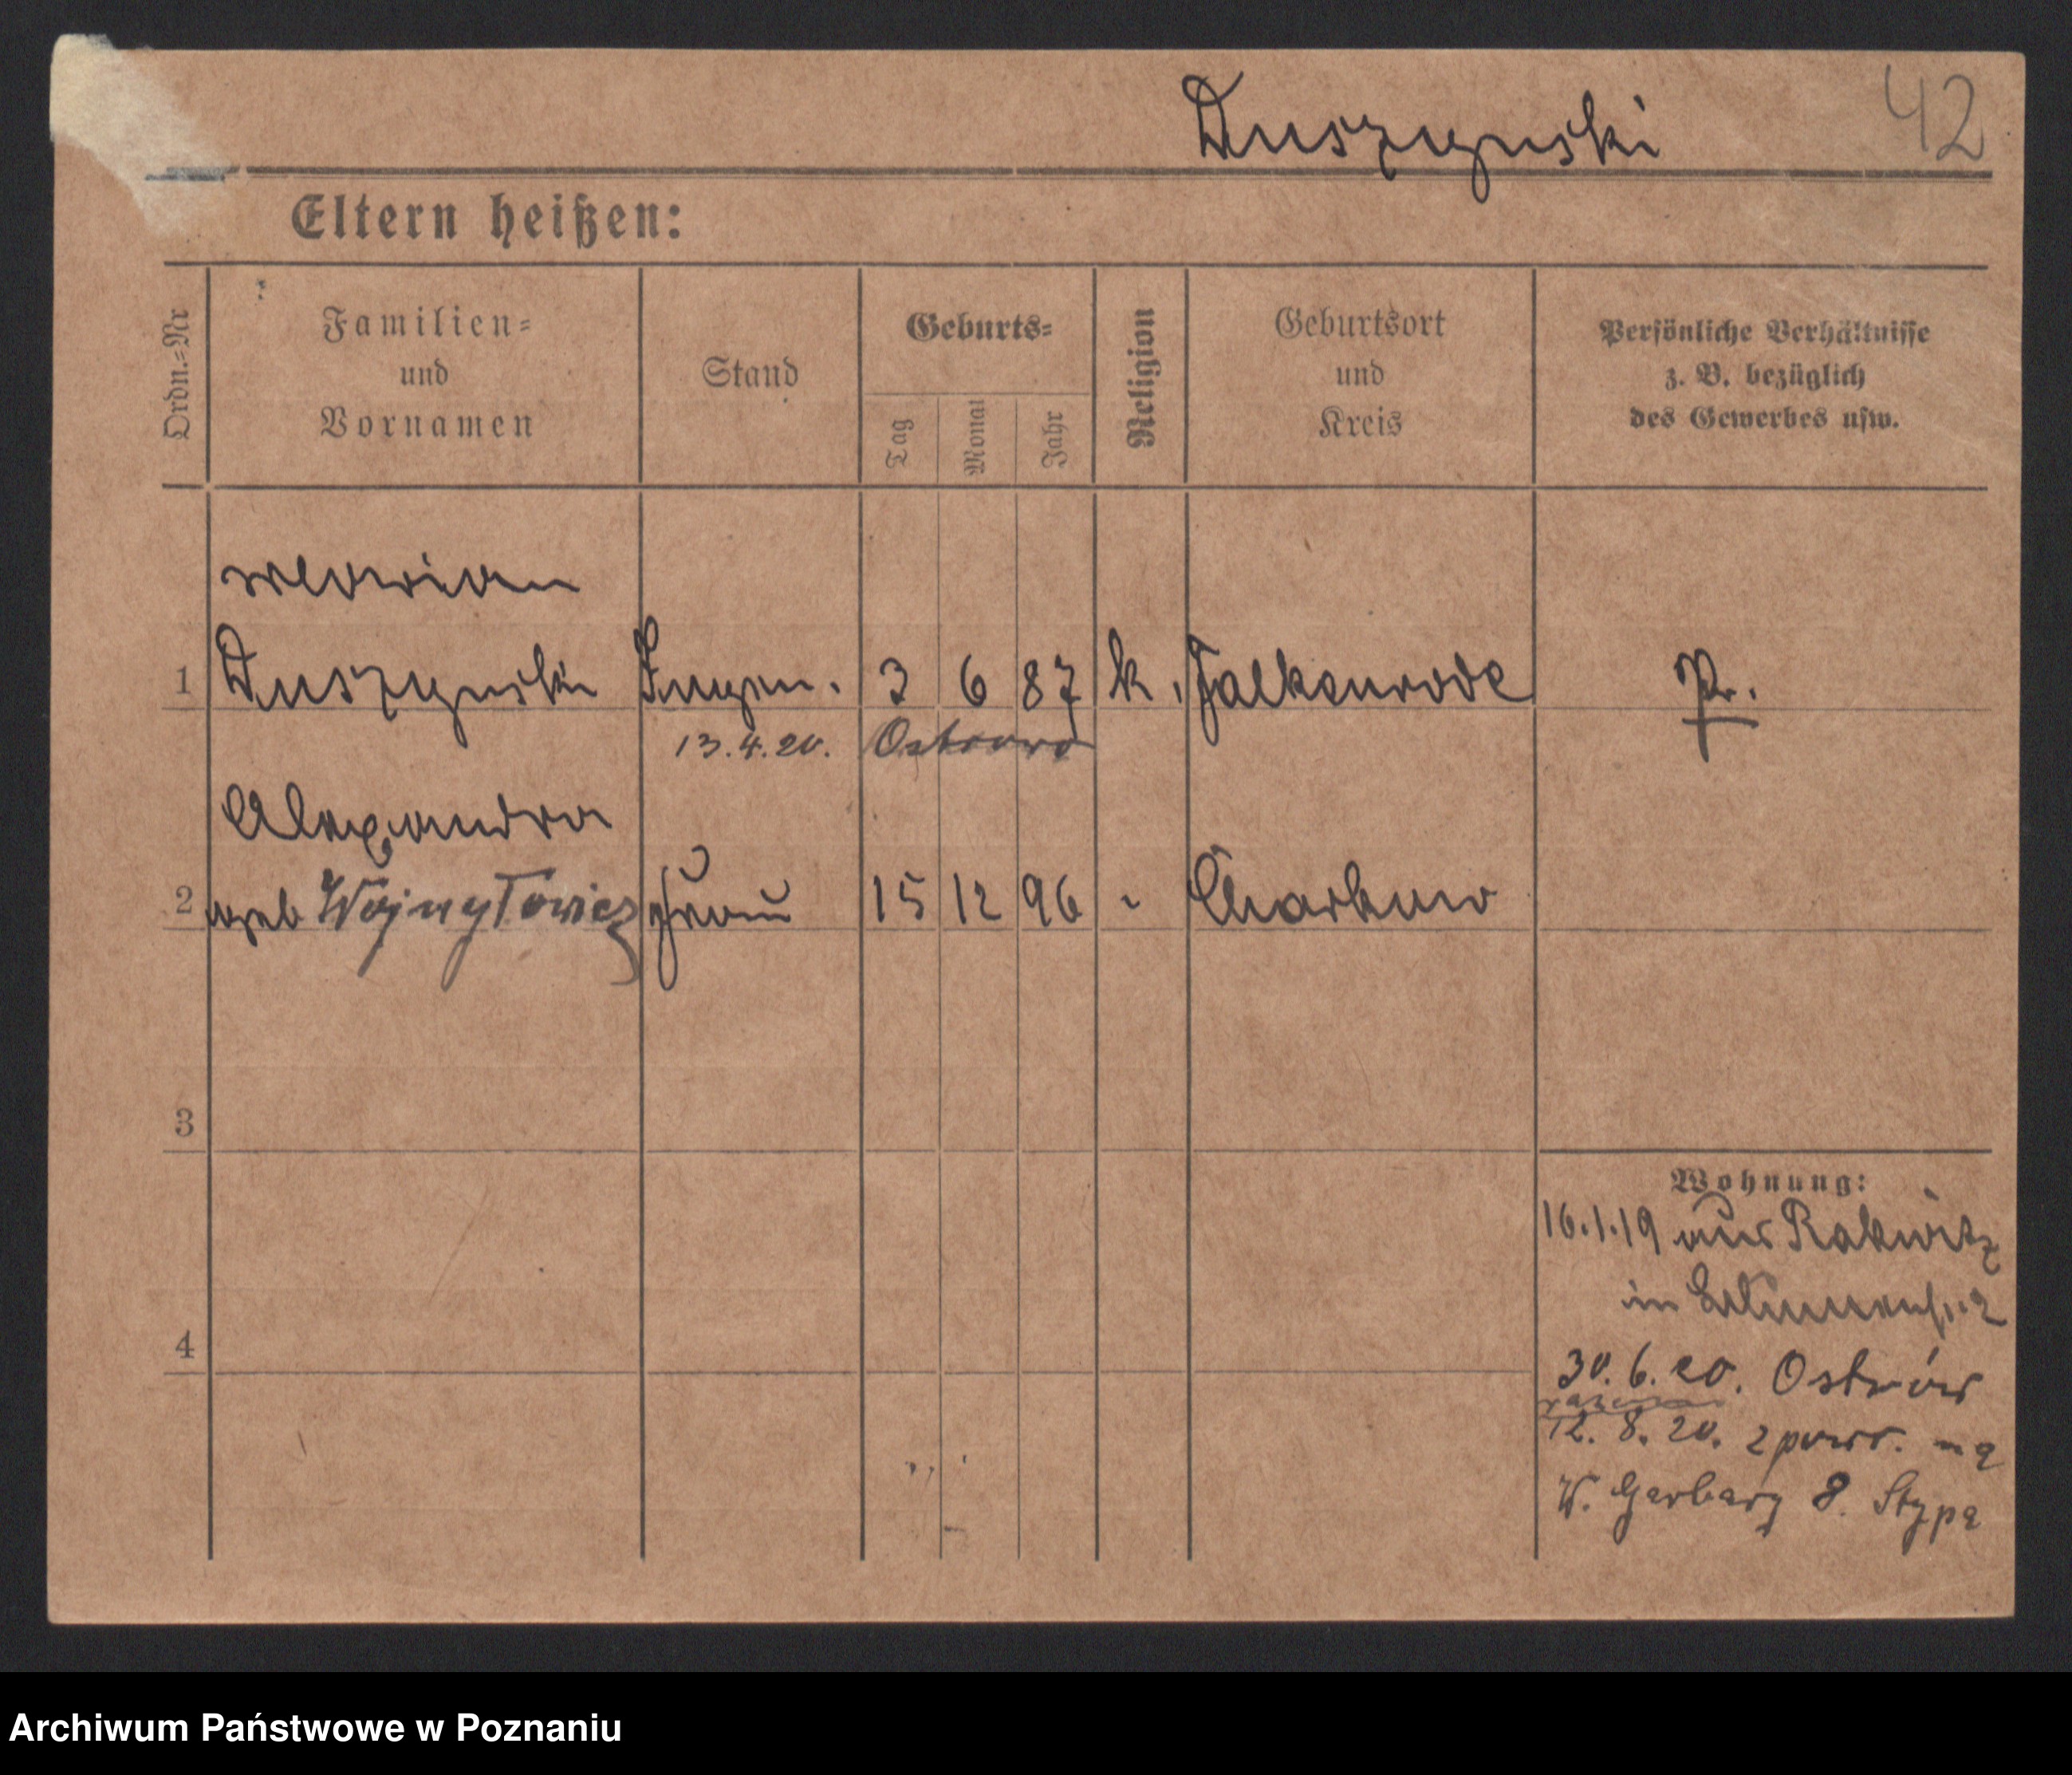 Duszynski 42
Eltern heißen:
Ordn.=Nr
Familien=
und
Vornamen
Stand
Geburts=
Tag
Monat
Jahr
Religion
Geburtsort
und
Kreis
Persönliche Verhältnisse
z. B. bezüglich
des Gewerbes usw.
Marian
1 Duszynski 3 6 87 k. Falkenrode Pr.
13.4.20. Ostrowo
Alexandra
2 geb Wojnytowicz Frau 15 12 96 Charkow
3
Wohnung:
16.1.19 aus Rakwitz
in
4
30.6.20. Ostrów
razem
12. 8. 20. z powr. na
W. Garbary 8. Stypa
Archiwum Państwowe w Poznaniu